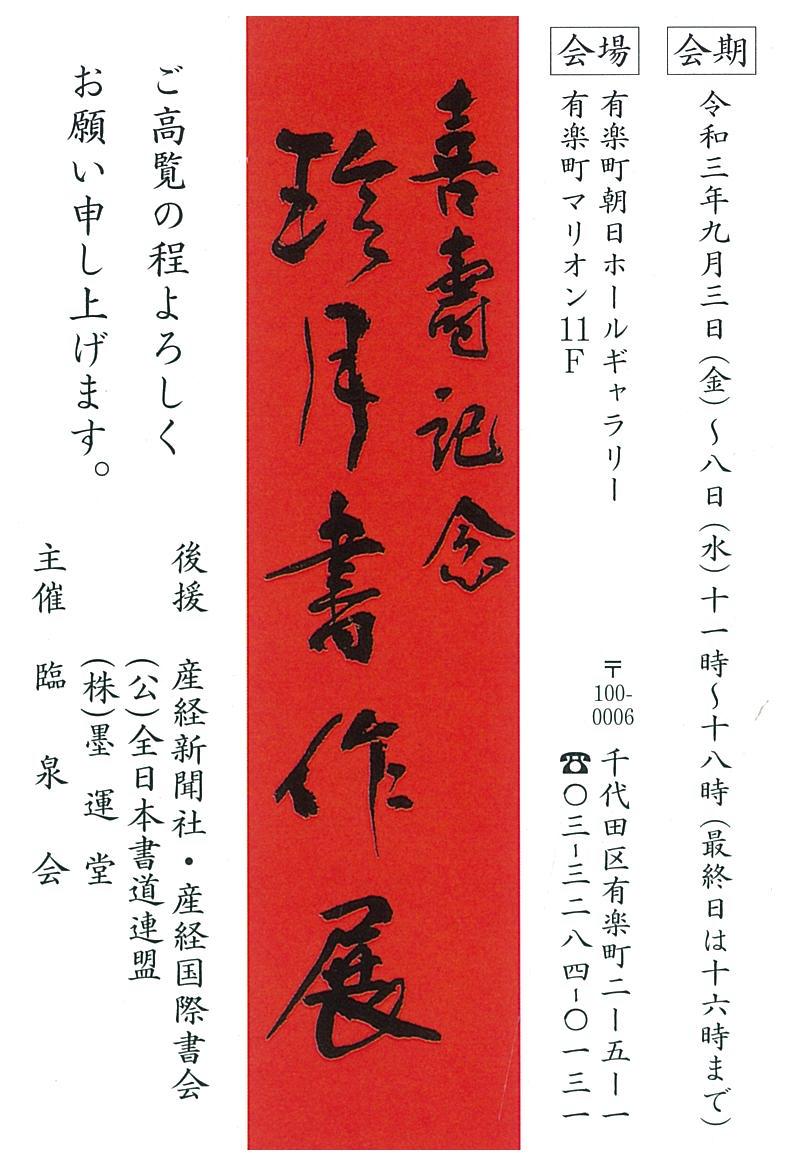 会期 令和三年九月三日(金)〜八日(水)十一時〜十八時(最終日は十六時まで)
会場 有楽町朝日ホールギャラリー
有楽町マリオン11F
〒100-0006 千代田区有楽町二ー五ー一
☎〇三-三二八四-〇一三一
喜壽記念
珍月書作展
ご高覧の程よろしく
お願い申し上げます。
後援 産経新聞社・産経国際書会
(公)全日本書道連盟
(株)墨運堂
主催 臨泉会